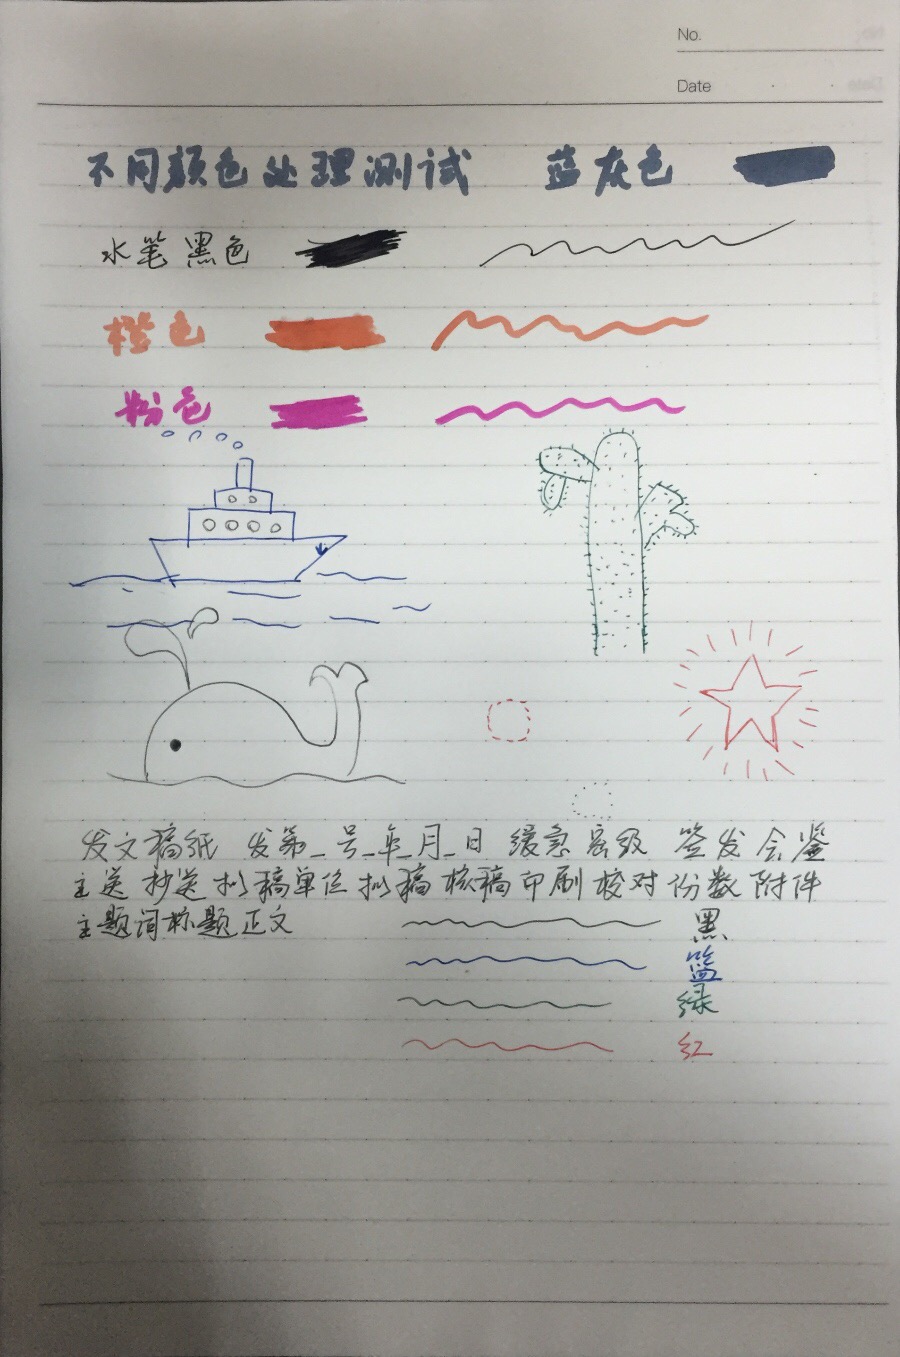 No.
Date
不同颜色处理测试 蓝灰色
水笔黑色
橙色
粉色
发文稿纸 发第_号_年_月_日 缓急 密级 签发 会鉴
主送 抄送 拟稿单位 拟稿 核稿 印刷 校对 份数 附件
主题词标题正文
黑
篮
绿
红